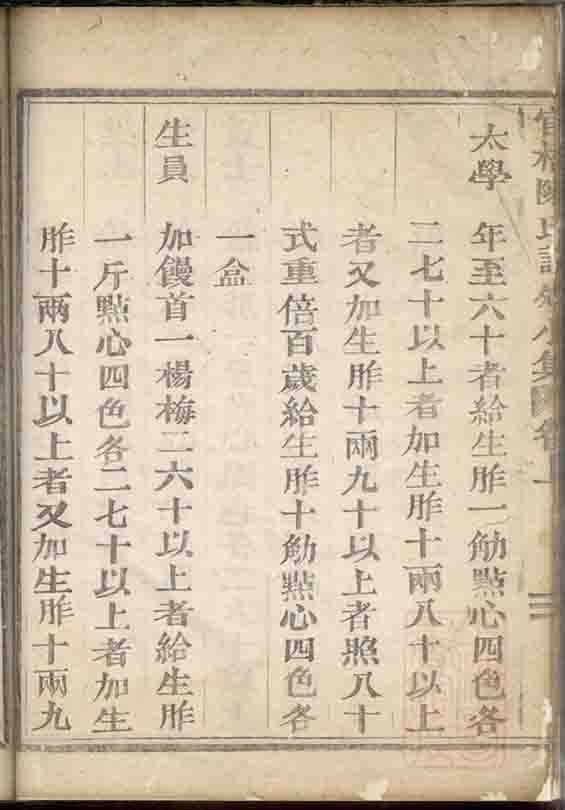 官村陳氏譜
太學 年至六十者給生胙一觔㸃心四色各
二七十以上者加生胙十兩八十以上
者又加生胙十兩九十以上者照八十
式重倍百歲給生胙十觔㸃心四色各
一盒
生員 加饅首一楊梅二六十以上者給生胙
一斤㸃心四色各二七十以上者加生
胙十兩八十以上者又加生胙十兩九